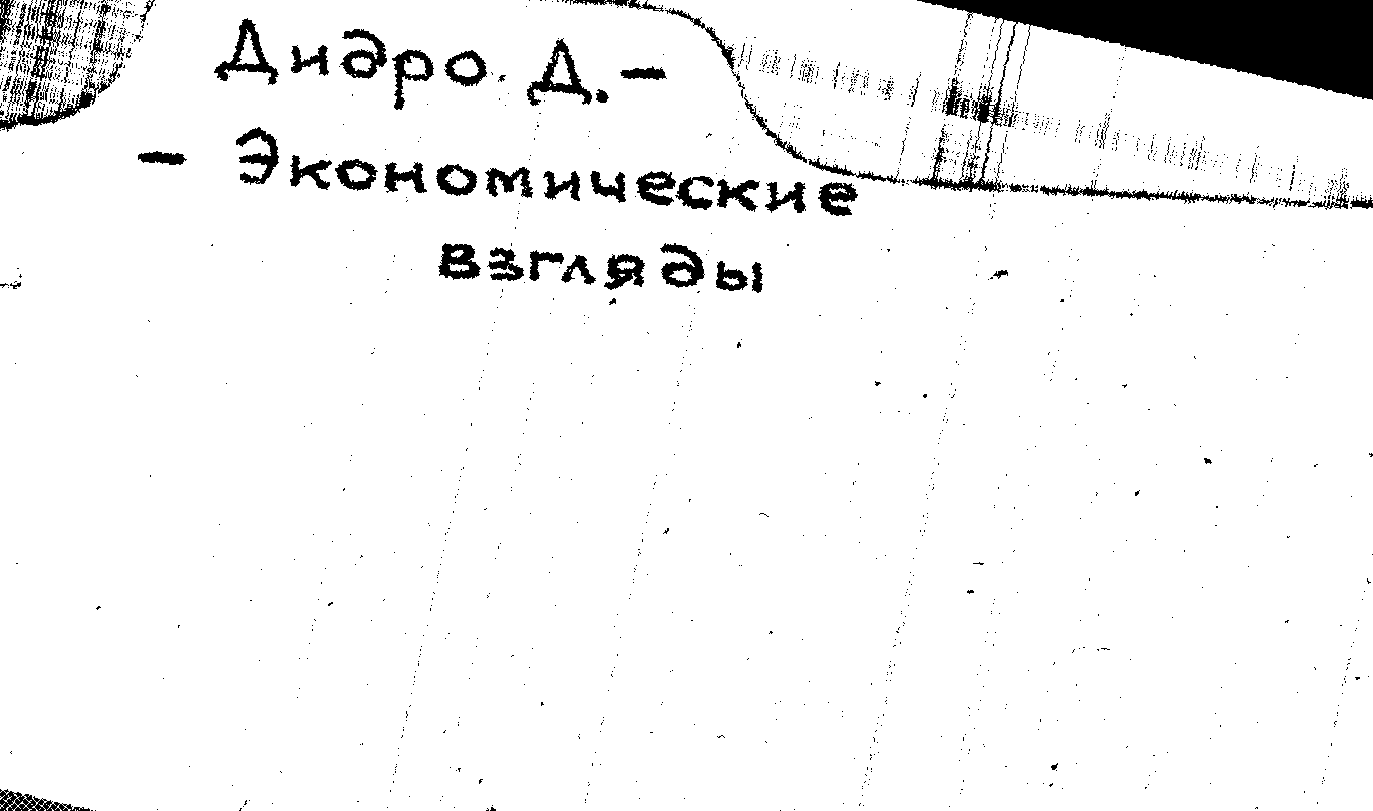 Дидро. Д. –
– Экономические
взгляды